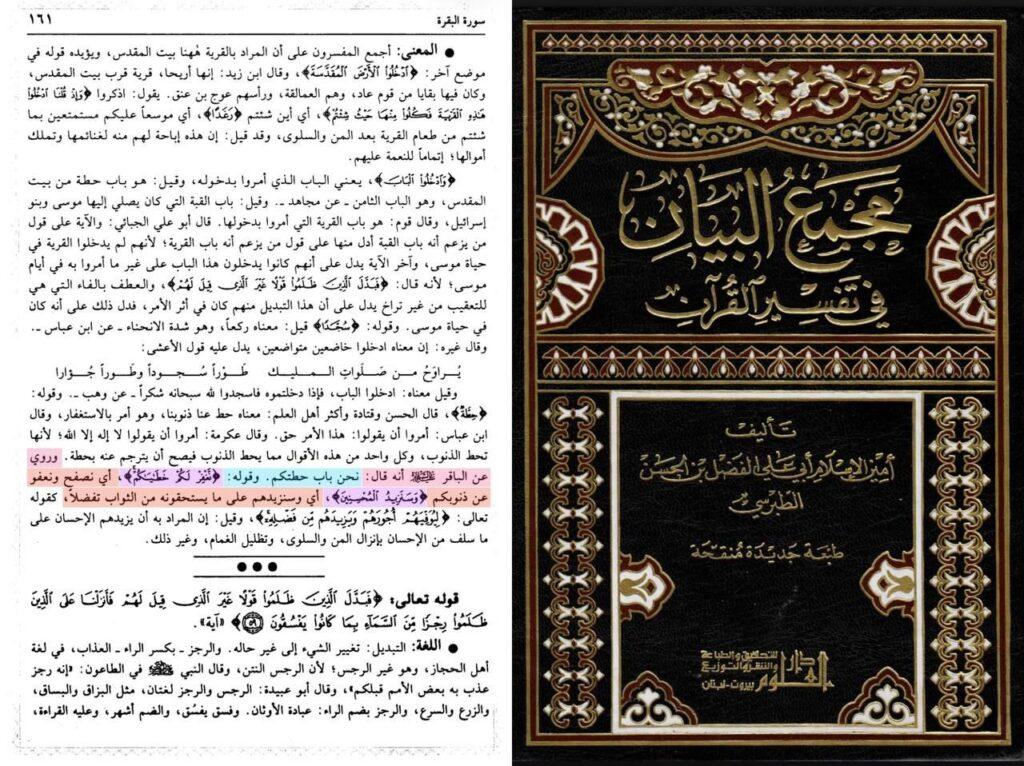 سورة البقرة ١٦١
● المعنى: أجمع المفسرون على أن المراد بالقرية ههنا بيت المقدس، ويؤيده قوله في
موضع آخر: ﴿ٱدْخُلُوا۟ ٱلْأَرْضَ ٱلْمُقَدَّسَةَ﴾، وقال ابن زيد: إنها أريحا، قرية قرب بيت المقدس،
وكان فيها بقايا من قوم عاد، وهم العمالقة، ورأسهم عوج بن عنق. يقول: اذكروا ﴿وَإِذْ قُلْنَا ٱدْخُلُوا۟
هَٰذِهِ ٱلْقَرْيَةَ فَكُلُوا۟ مِنْهَا حَيْثُ شِئْتُمْ﴾، أي أين شئتم ﴿رَغَدًا﴾، أي موسعاً عليكم مستمتعين بما
شئتم من طعام القرية بعد المن والسلوى، وقد قيل: إن هذه إباحة لهم منه لغنائمها وتملك
أموالها؛ إتماماً للنعمة عليهم.
﴿وَٱدْخُلُوا۟ ٱلْبَابَ﴾، يعني الباب الذي أمروا بدخوله، وقيل: هو باب حطة من بيت
المقدس، وهو الباب الثامن ـ عن مجاهد ـ. وقيل: باب القبة التي كان يصلي إليها موسى وبنو
إسرائيل، وقال قوم: هو باب القرية التي أمروا بدخولها. قال أبو علي الجبائي: والآية على قول
من يزعم أنه باب القبة أدل منها على قول من يزعم أنه باب القرية؛ لأنهم لم يدخلوا القرية في
حياة موسى، وآخر الآية يدل على أنهم كانوا يدخلون هذا الباب على غير ما أمروا به في أيام
موسى؛ لأنه قال: ﴿فَبَدَّلَ ٱلَّذِينَ ظَلَمُوا۟ قَوْلًا غَيْرَ ٱلَّذِى قِيلَ لَهُمْ﴾، والعطف بالفاء التي هي
للتعقيب من غير تراخ يدل على أن هذا التبديل منهم كان في أثر الأمر، فدل ذلك على أنه كان
في حياة موسى. وقوله: ﴿سُجَّدًا﴾ قيل: معناه ركعاً، وهو شدة الانحناء ـ عن ابن عباس ـ.
وقال غيره: إن معناه ادخلوا خاضعين متواضعين، يدل عليه قول الأعشى:
يُراوَحُ من صَلَواتِ المليك طَوْراً سُجوداً وطَوراً جُؤارا
وقيل معناه: ادخلوا الباب، فإذا دخلتموه فاسجدوا لله سبحانه شكراً ـ عن وهب ـ. وقوله:
﴿حِطَّةٌ﴾، قال الحسن وقتادة وأكثر أهل العلم: معناه حط عنا ذنوبنا، وهو أمر بالاستغفار، وقال
ابن عباس: أمروا أن يقولوا: هذا الأمر حق. وقال عكرمة: أمروا أن يقولوا لا إله إلا الله؛ لأنها
تحط الذنوب، وكل واحد من هذه الأقوال مما يحط الذنوب فيصح أن يترجم عنه بحطة. وروي
عن الباقر عليه السلام أنه قال: نحن باب حطتكم. وقوله: ﴿نَّغْفِرْ لَكُمْ خَطَٰيَٰكُمْ﴾، أي نصفح ونعفو
عن ذنوبكم ﴿وَسَنَزِيدُ ٱلْمُحْسِنِينَ﴾، أي وسنزيدهم على ما يستحقونه من الثواب تفضلاً، كقوله
تعالى: ﴿لِيُوَفِّيَهُمْ أُجُورَهُمْ وَيَزِيدَهُم مِّن فَضْلِهِۦ﴾، وقيل: إن المراد به أن يزيدهم الإحسان على
ما سلف من الإحسان بإنزال المن والسلوى، وتظليل الغمام، وغير ذلك.
●●●
قوله تعالى: ﴿فَبَدَّلَ ٱلَّذِينَ ظَلَمُوا۟ قَوْلًا غَيْرَ ٱلَّذِى قِيلَ لَهُمْ فَأَنزَلْنَا عَلَى ٱلَّذِينَ
ظَلَمُوا۟ رِجْزًا مِّنَ ٱلسَّمَآءِ بِمَا كَانُوا۟ يَفْسُقُونَ ۝٥٩﴾ «آية».
● اللغة: التبديل: تغيير الشيء إلى غير حاله. والرجز ـ بكسر الراء ـ العذاب، في لغة
أهل الحجاز، وهو غير الرجس؛ لأن الرجس النتن، وقال النبي ﷺ في الطاعون: «إنه رجز
عذب به بعض الأمم قبلكم»، وقال أبو عبيدة: الرجس والرجز لغتان، مثل البزاق والبساق،
والزرع والسرع، والرجز بضم الراء: عبادة الأوثان. وفسق يفسُق، والضم أشهر، وعليه القراءة،
مجمع البيان
في تفسير القرآن
تأليف
أمين الإسلام أبي علي الفضل بن الحسن
الطبرسي
طبعة جديدة منقحة
دار العلوم
للتحقيق والطباعة
والنشر والتوزيع
بيروت - لبنان